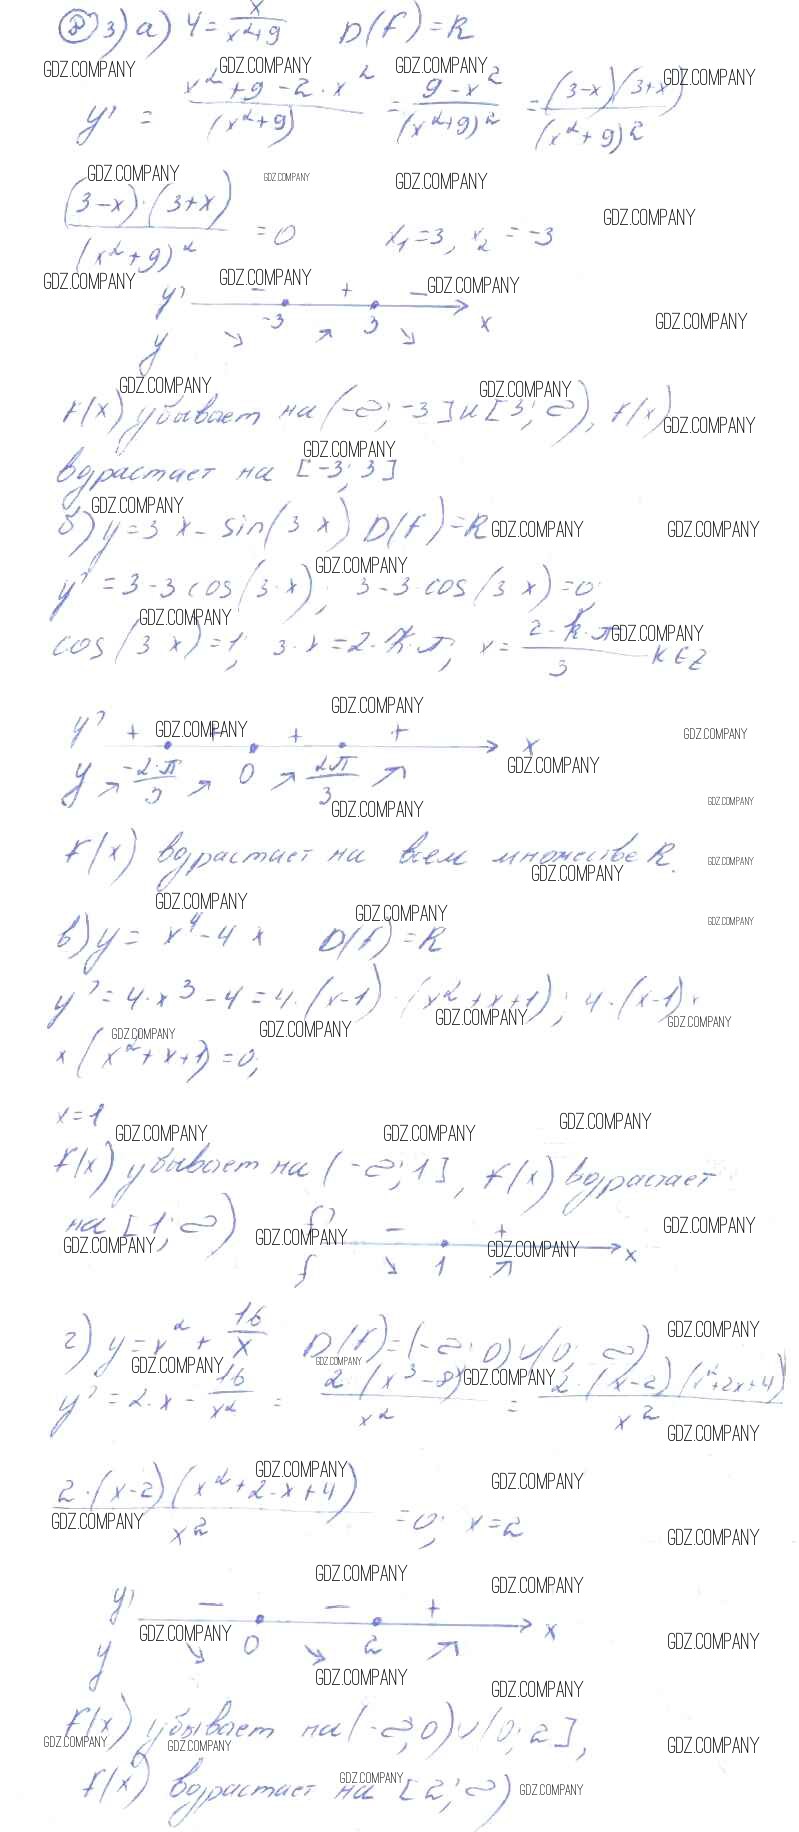 ⑧ 3) а) y = x/(x²+9) D(f) = R
GDZ.COMPANY GDZ.COMPANY GDZ.COMPANY GDZ.COMPANY
y' = (x²+9-2·x²)/(x²+9) = (9-x²)/(x²+9)² = (3-x)(3+x)/(x²+9)²
GDZ.COMPANY GDZ.COMPANY GDZ.COMPANY GDZ.COMPANY
(3-x)·(3+x)/(x²+9)² = 0 x₁=3, x₂=-3
GDZ.COMPANY GDZ.COMPANY GDZ.COMPANY GDZ.COMPANY
y' - + - x
-3 3
y ↘ ↗ ↘
GDZ.COMPANY GDZ.COMPANY GDZ.COMPANY
f(x) убывает на (-∞; -3] и [3; ∞), f(x)
GDZ.COMPANY
возрастает на [-3; 3]
GDZ.COMPANY
б) y = 3x - sin(3x) D(f) = R GDZ.COMPANY GDZ.COMPANY
GDZ.COMPANY
y' = 3-3cos(3·x); 3-3·cos(3x)=0;
GDZ.COMPANY GDZ.COMPANY
cos(3x)=1; 3·x=2·k·π; x = 2·k·π/3 k∈Z
GDZ.COMPANY
y' + + + + x
GDZ.COMPANY GDZ.COMPANY GDZ.COMPANY
y ↗ -2·π/3 ↗ 0 ↗ 2π/3 ↗
GDZ.COMPANY GDZ.COMPANY
f(x) возрастает на всем множестве R.
GDZ.COMPANY GDZ.COMPANY
GDZ.COMPANY GDZ.COMPANY GDZ.COMPANY
в) y = x⁴-4x D(f) = R
y' = 4·x³-4 = 4·(x-1)·(x²+x+1); 4·(x-1)×
GDZ.COMPANY GDZ.COMPANY GDZ.COMPANY GDZ.COMPANY
×(x²+x+1)=0;
x=1
GDZ.COMPANY GDZ.COMPANY GDZ.COMPANY
f(x) убывает на (-∞; 1], f(x) возрастает
на [1; ∞) f' - + x
GDZ.COMPANY GDZ.COMPANY GDZ.COMPANY GDZ.COMPANY
f ↘ 1 ↗
г) y = x² + 16/x D(f) = (-∞; 0)∪(0; ∞)
GDZ.COMPANY GDZ.COMPANY GDZ.COMPANY GDZ.COMPANY
y' = 2·x - 16/x² = 2·(x³-8)/x² = 2·(x-2)(x²+2x+4)/x²
GDZ.COMPANY
GDZ.COMPANY GDZ.COMPANY
2·(x-2)(x²+2·x+4)/x² = 0; x=2
GDZ.COMPANY GDZ.COMPANY
GDZ.COMPANY GDZ.COMPANY
y' - - + x
GDZ.COMPANY GDZ.COMPANY
y ↘ 0 ↘ 2 ↗
GDZ.COMPANY GDZ.COMPANY
f(x) убывает на (-∞; 0)∪(0; 2],
GDZ.COMPANY GDZ.COMPANY GDZ.COMPANY
f(x) возрастает на [2; ∞)
GDZ.COMPANY GDZ.COMPANY